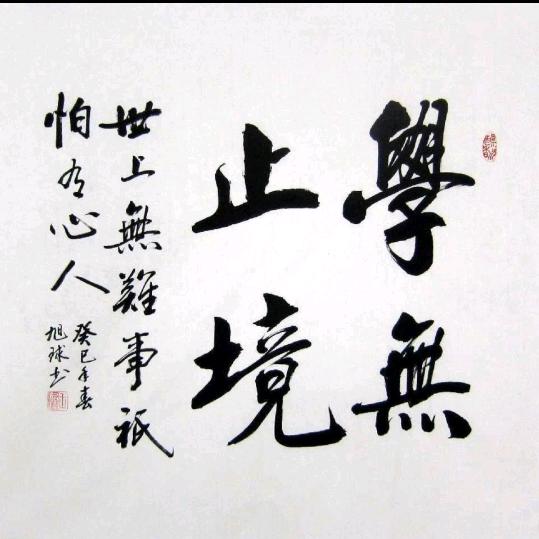 學無
止境
世上無難事祇
怕有心人
癸巳年春
旭球书